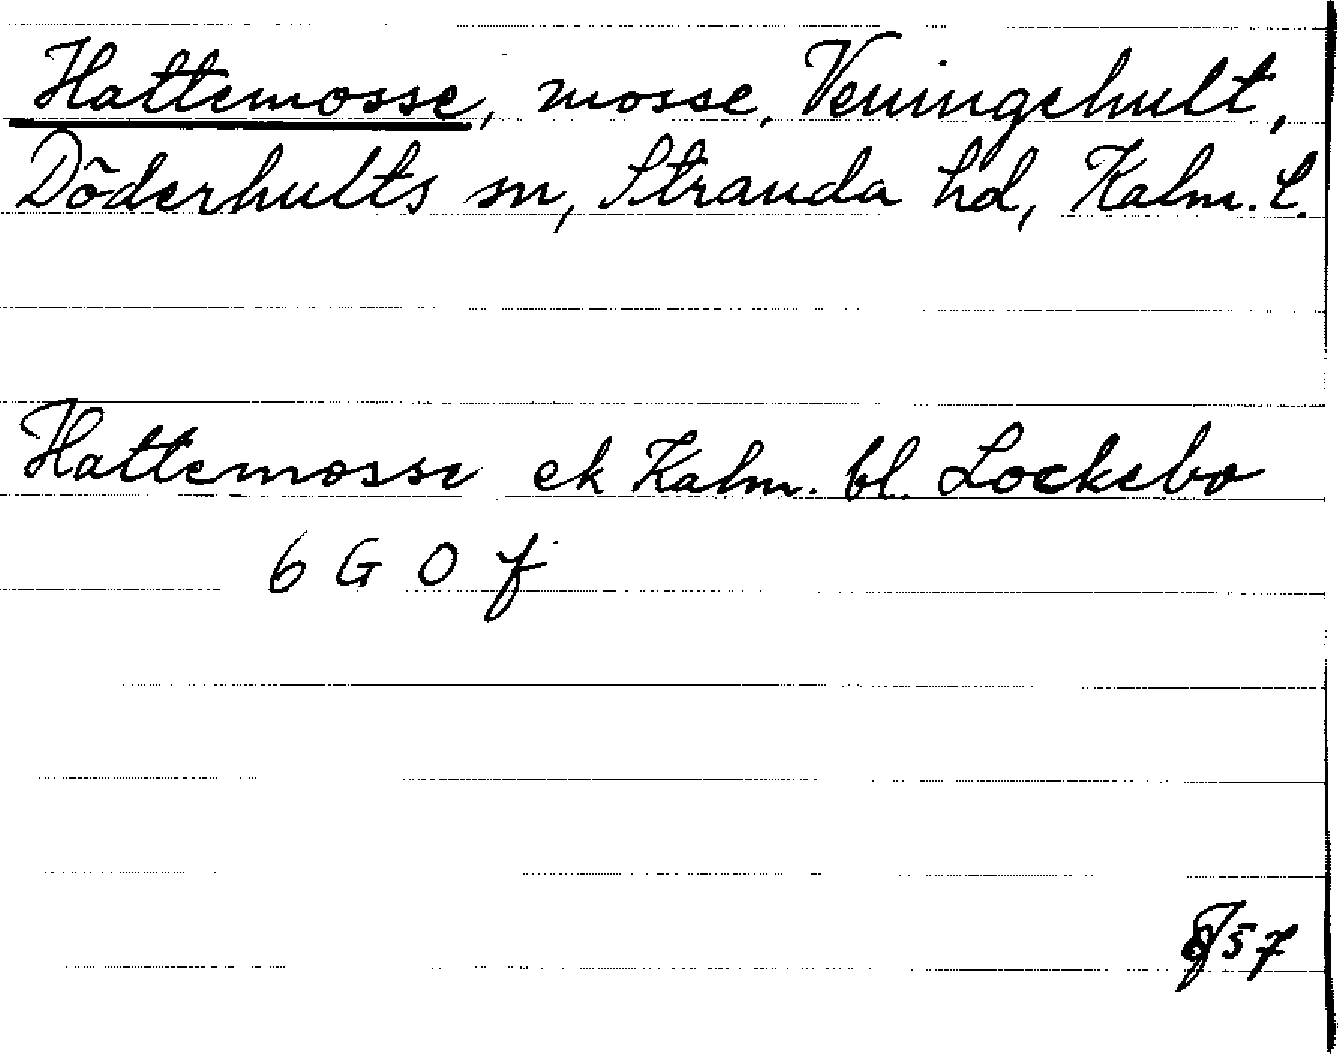 Hattemosse, mosse, Veningehult,
Döderhults sn, Stranda hd, Kalm. l.
Hattemosse ek Kalm. bl. Lockebo
6 G 0 f
57